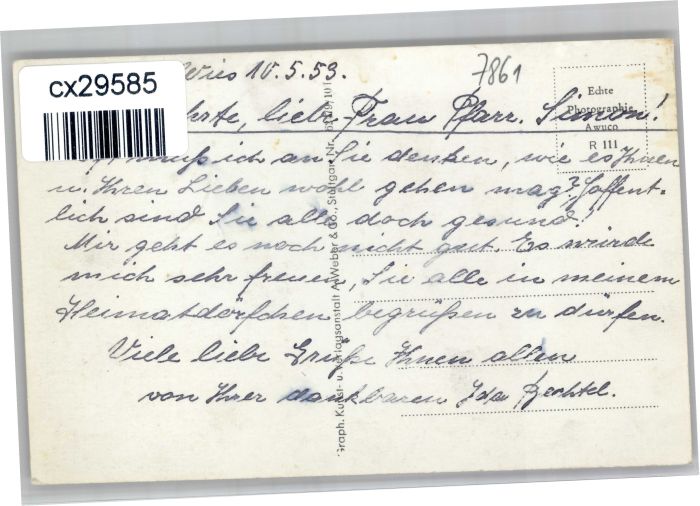 cx29585
Wies 10.5.53.
7861
Echte
Photographie
Awuco
R 111
liebe Frau Pfarr. Simon!
muß ich an Sie denken, wie es Ihnen
u. Ihren Lieben wohl gehen mag? Hoffent-
lich sind Sie alle doch gesund!
Mir geht es noch nicht gut. Es würde
mich sehr freuen, Sie alle in meinem
Heimatdörfchen begrüßen zu dürfen.
Viele liebe Grüße Ihnen allen
von Ihrer dankbaren Ida Bechtel.
Graph. Kunst- u. Verlagsanstalt A. Weber & Co., Stuttgart Nr.